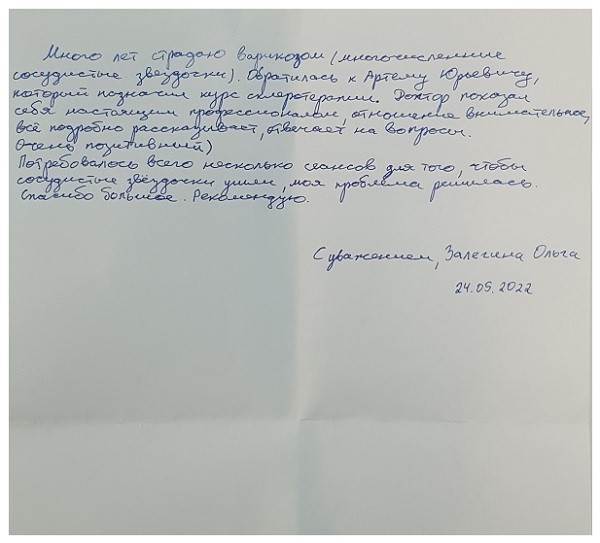 Много лет страдаю варикозом (многочисленные
сосудистые звёздочки). Обратилась к Артему Юрьевичу,
который назначил курс склеротерапии. Доктор показал
себя настоящим профессионалом, отношение внимательное,
всё подробно рассказывает, отвечает на вопросы.
Очень позитивный)
Потребовалось всего несколько сеансов для того, чтобы
сосудистые звёздочки ушли, моя проблема решилась.
Спасибо большое. Рекомендую.
С уважением, Залегина Ольга
24.05.2022